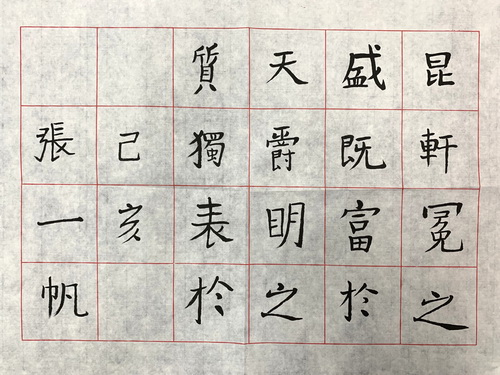 昆軒冕之
盛既富於
天爵明之
質獨表於
己亥
張一帆